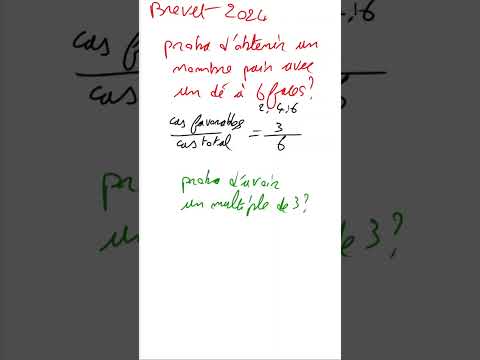 Brevet 2024
proba d'obtenir un
nombre pair avec
un dé à 6 faces?
2; 4; 6
cas favorables
cas total
= 3
6
proba d'avoir
un multiple de 3?